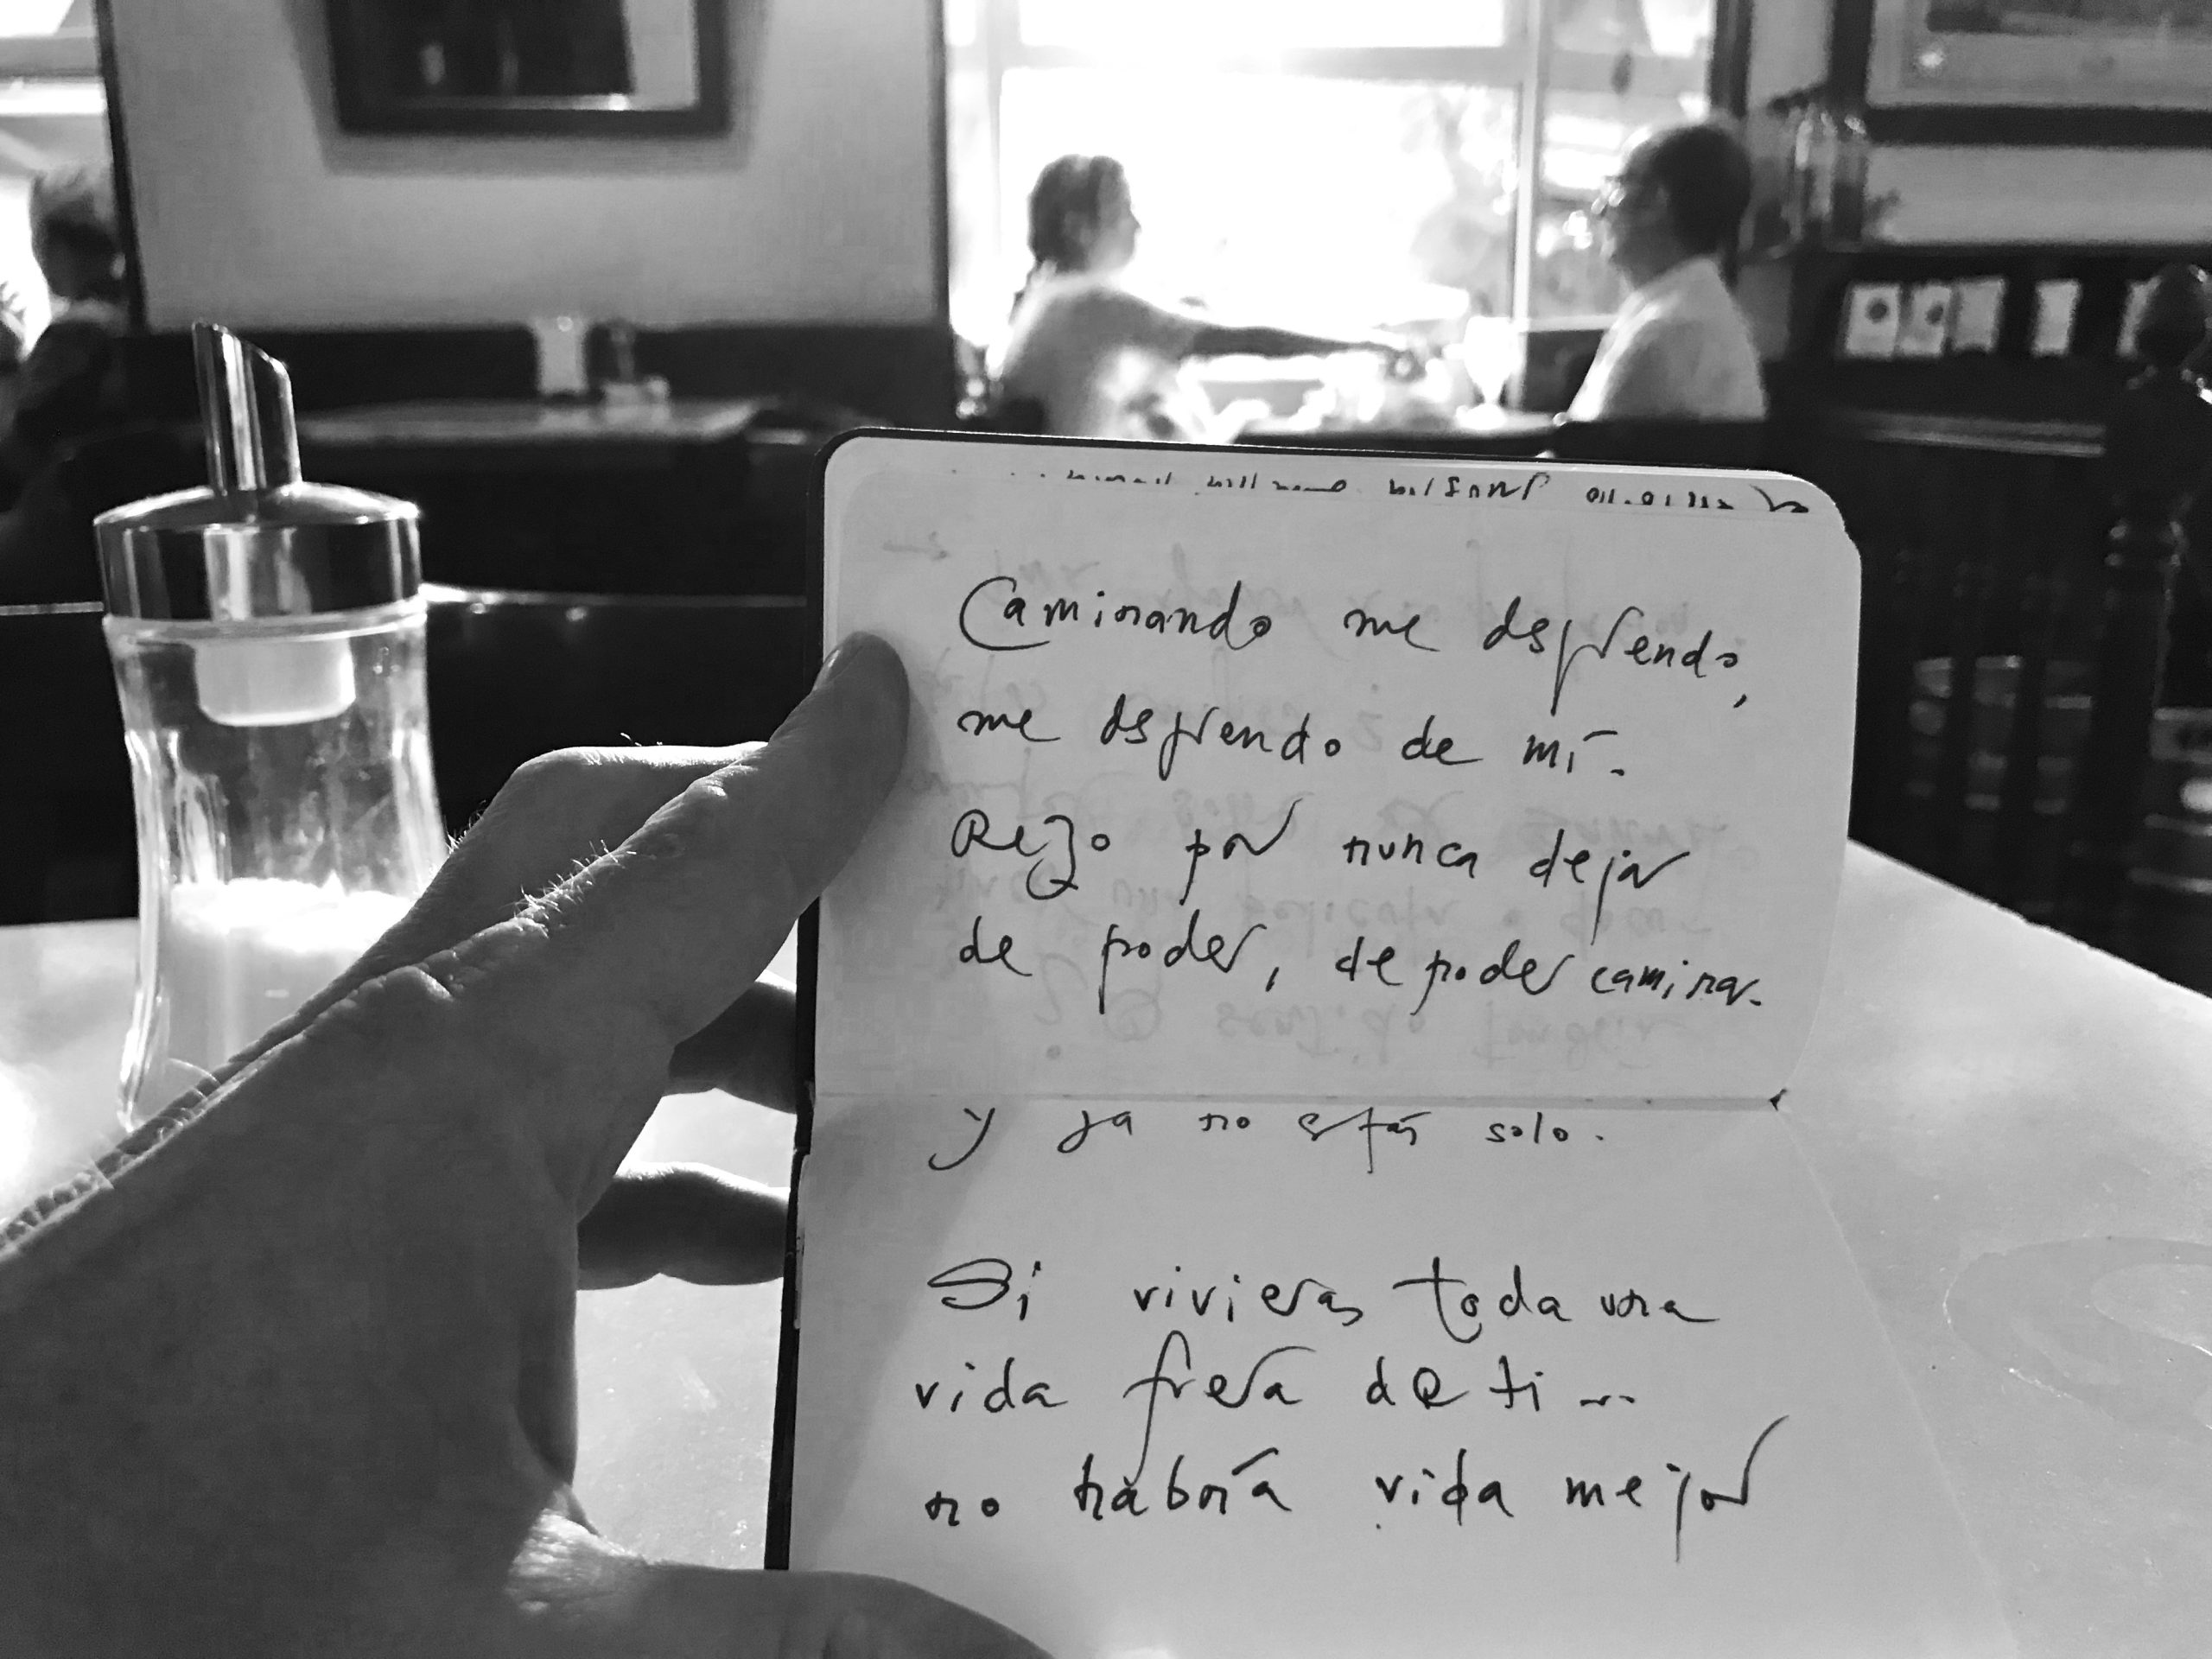 Caminando me desprendo,
me desprendo de mí.
Rezo por nunca dejar
de poder, de poder caminar.
y ya no estás solo.
Si vivieras toda una
vida fuera de ti...
no habría vida mejor